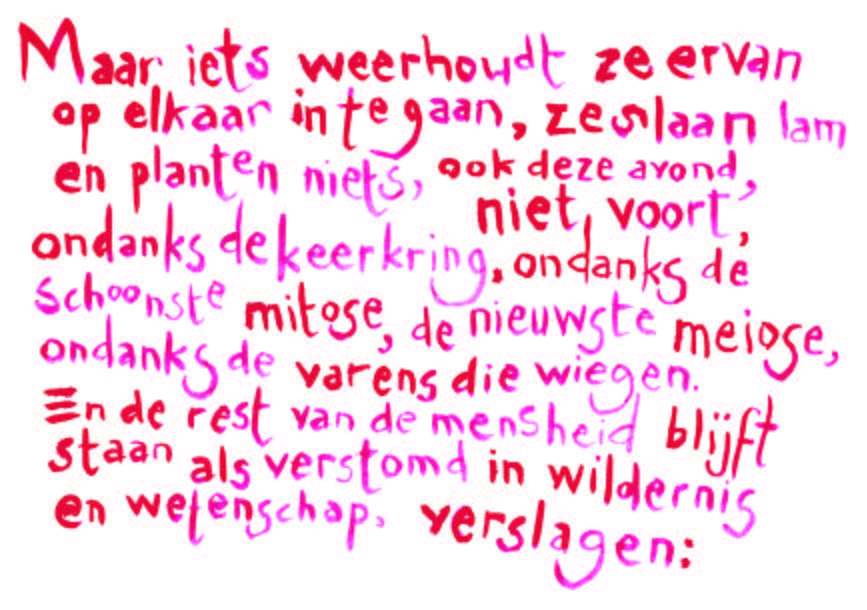 Maar iets weerhoudt ze ervan
op elkaar in te gaan, ze slaan lam
en planten niets, ook deze avond,
niet, voort,
ondanks de keerkring, ondanks de
schoonste mitose, de nieuwste meiose,
ondanks de varens die wiegen.
En de rest van de mensheid blijft
staan als verstomd in wildernis
en wetenschap, verslagen: